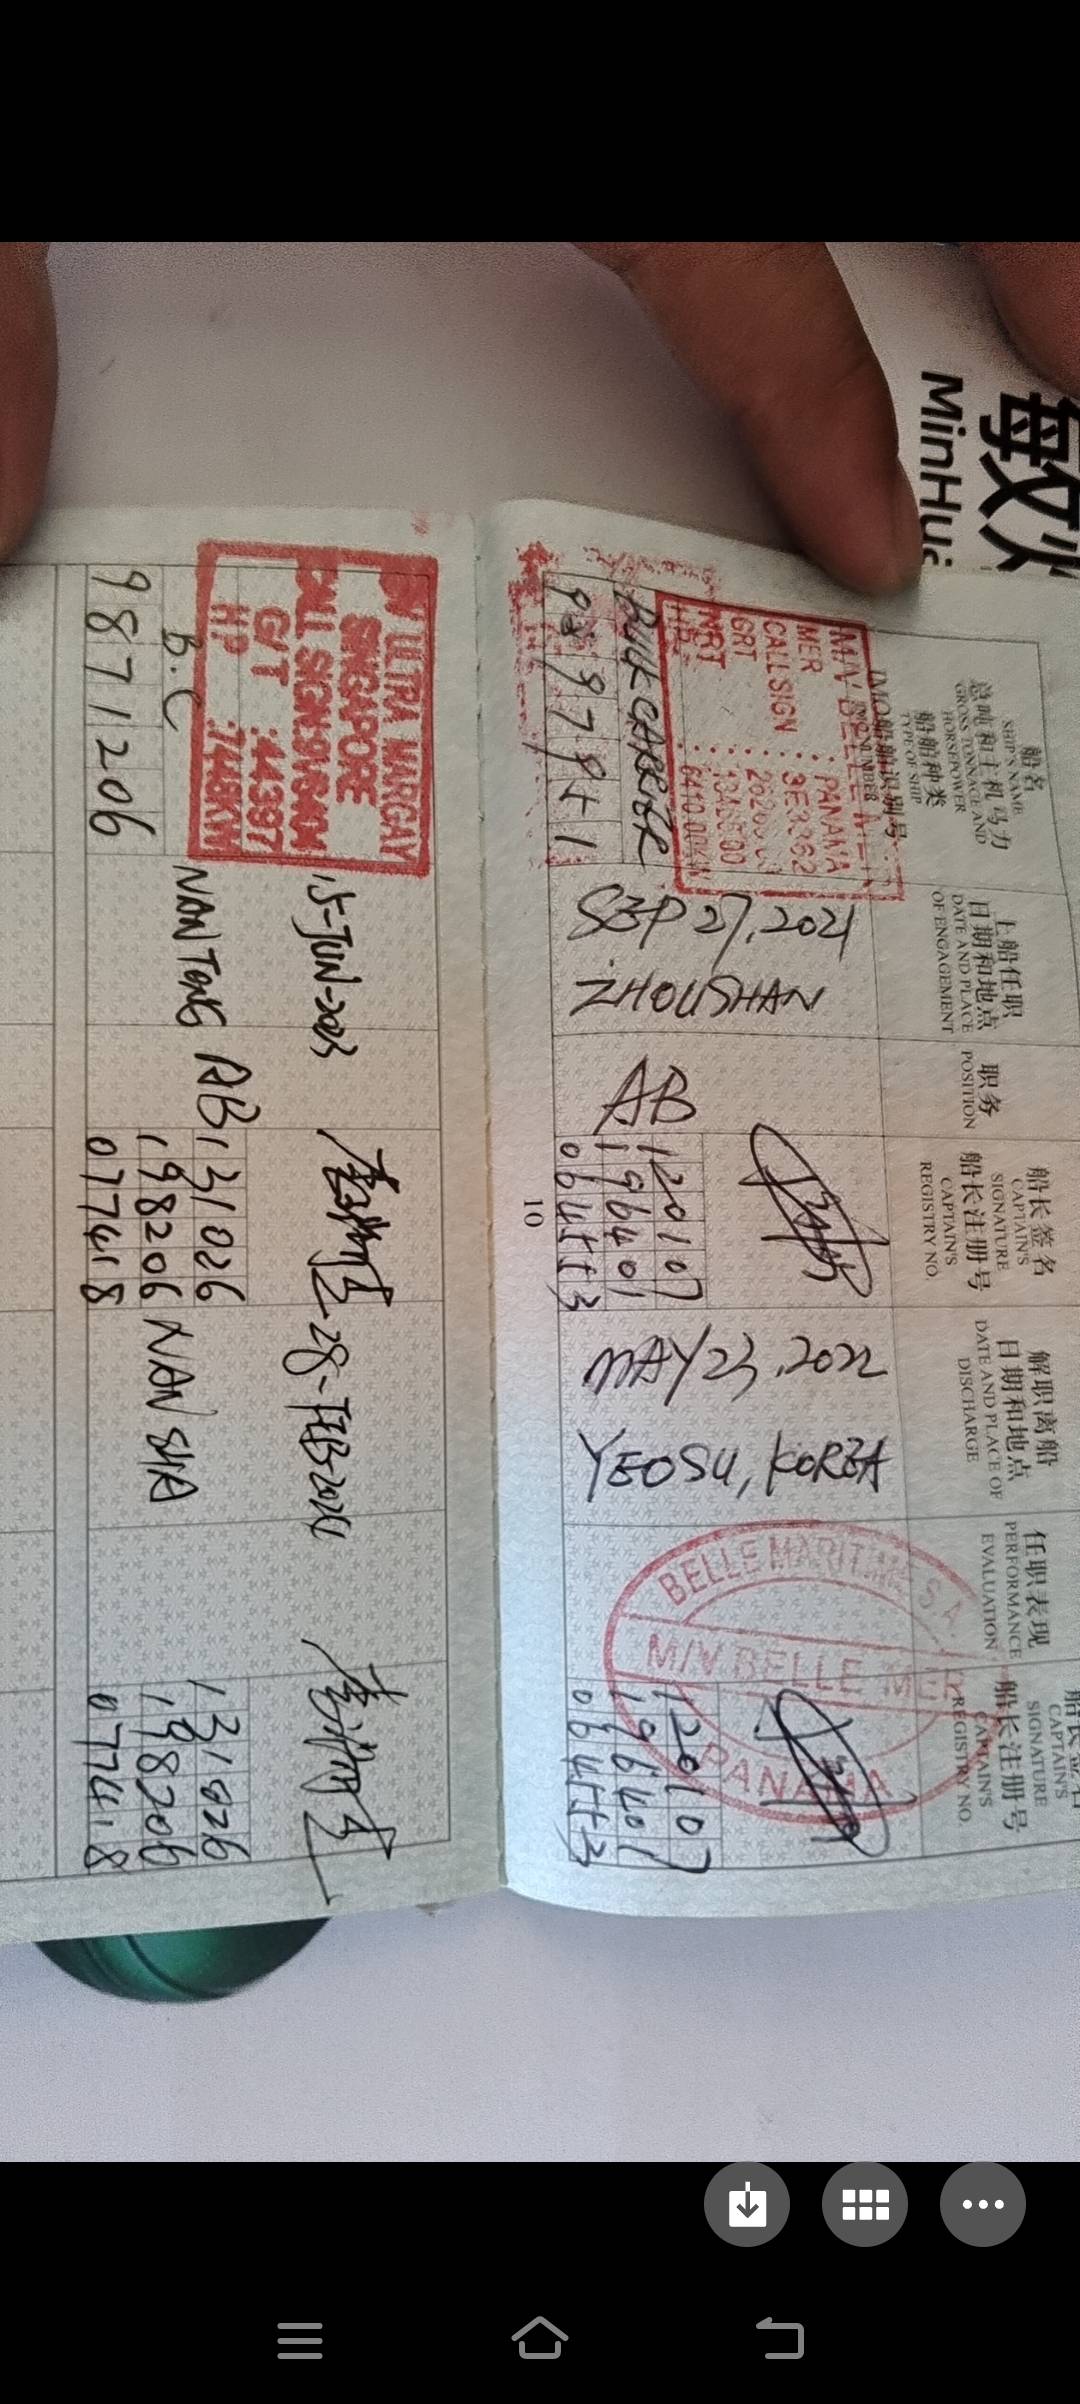 敏
MinHua
船名
SHIP'S NAME
总吨和主机马力
GROSS TONNAGE AND
HORSEPOWER
船舶种类
TYPE OF SHIP
IMO船舶识别号
IMO NUMBER
上船任职
日期和地点
DATE AND PLACE
OF ENGAGEMENT
职务
POSITION
船长签名
CAPTAIN'S
SIGNATURE
船长注册号
CAPTAIN'S
REGISTRY NO.
解职离船
日期和地点
DATE AND PLACE OF
DISCHARGE
任职表现
PERFORMANCE
EVALUATION
船长签名
CAPTAIN'S
SIGNATURE
船长注册号
CAPTAIN'S
REGISTRY NO.
M/V BELLE MER
MER : PANAMA
CALL SIGN : 3E3362
GRT
NRT
HP
BULK CARRIER
SEP 27, 2021
ZHOUSHAN
AB
120107
196401
064553
MAY 23, 2022
YEOSU, KOREA
BELLE MARITIME S.A.
M/V BELLE MER
PANAMA
120107
196401
064553
10
MV ULTRA MARGAY
SINGAPORE
CALL SIGN
G/T :44397
HP
B.C
9871206
15-JUN-2023
NANTONG
AB
131026
198206
077418
28-FEB-2024
NANSHA
131026
198206
077418